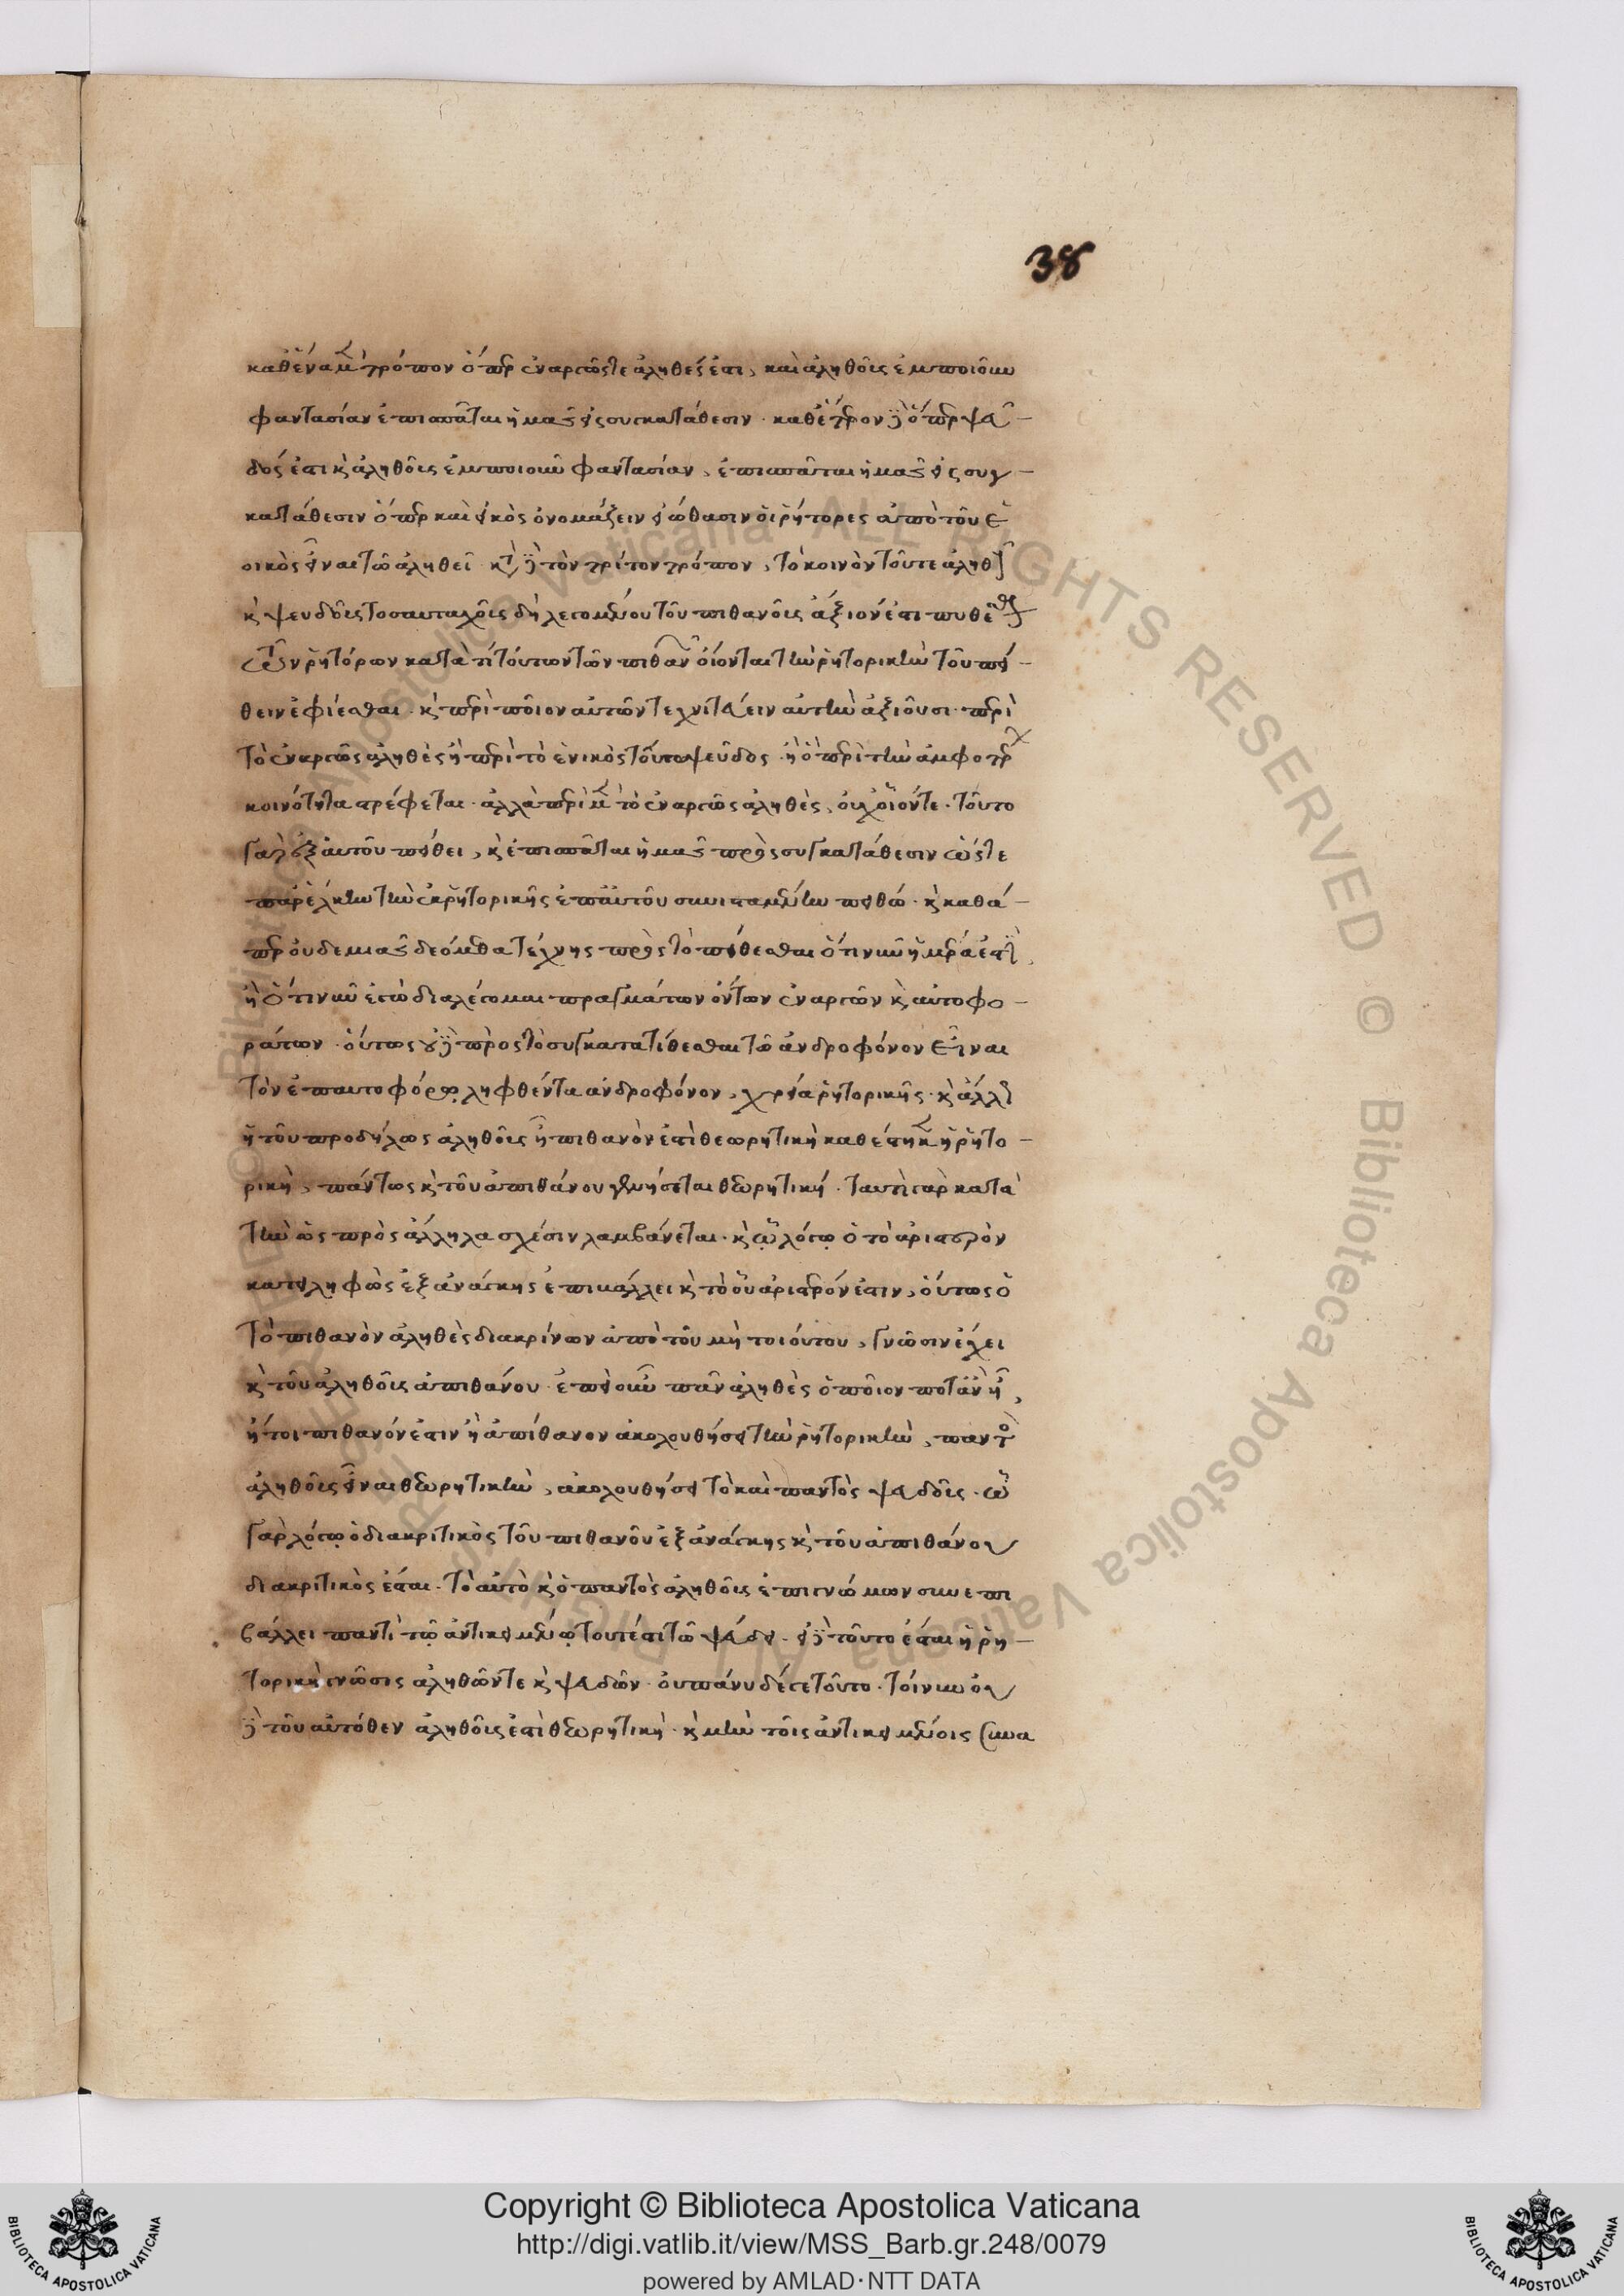 38
καθ' ἕνα μὲν τρόπον ὅπερ ἐναργῶς τε ἀληθές ἐστι, καὶ ἀληθοῦς ἐμποιοῦν
φαντασίαν ἐπισπᾶται ἡμᾶς εἰς συγκατάθεσιν. καθ' ἕτερον δὲ ὅπερ ψεῦ-
δός ἐστι κὶ ἀληθοῦς ἐμποιοῦν φαντασίαν, ἐπισπᾶται ἡμᾶς εἰς συγ-
κατάθεσιν ὅπερ καὶ εἰκὸς ὀνομάζειν εἰώθασιν οἱ ῥήτορες ἀπὸ τοῦ ἐ
οικὸς εἶναι τῶ ἀληθεῖ. κατὰ δὲ τὸν τρίτον τρόπον, τὸ κοινὸν τοῦ τε ἀληθοῦς
κὶ ψευδοῦς τοσαυταχῶς δὴ λεγομένου τοῦ πιθανοῦ ἄξιόν ἐστι πυθέσθαι
τῶν ῥητόρων κατὰ τί τούτων τῶν πιθανῶν οἴονται τὴν ῥητορικὴν τοῦ πεί-
θειν ἐφίεσθαι. κὶ περὶ ποῖον αὐτῶν τεχνιτεύειν αὐτὴν ἀξιοῦσι. περὶ
τὸ ἐναργῶς ἀληθὲς ἢ περὶ τὸ ἐνικὸς τούτω ψεῦδος. ἢ ὁ περὶ τὴν ἀμφοτέρων
κοινότητα στρέφεται. ἀλλὰ περὶ μὲν τὸ ἐναργῶς ἀληθὲς, οὐχ οἷόν τε. τοῦτο
γὰρ ἐξ αὐτοῦ πείθει, κὶ ἐπισπᾶται ἡμᾶς πρὸς συγκατάθεσιν ὥστε
παρέλκειν τὴν ἐκ ῥητορικῆς ἐπ' αὐτοῦ συνισταμένην πειθώ. κὶ καθά-
περ οὐδεμιᾶς δεόμεθα τέχνης πρὸς τὸ πείθεσθαι ὅτι νῦν ἡμέρα ἐστὶν,
ἢ ὅτι νῦν ἐγὼ διαλέγομαι πραγμάτων ὄντων ἐναργῶν κὶ αὐτοφω-
ράτων. οὕτως οὐδὲ πρὸς τὸ συγκατατίθεσθαι τῶ ἀνδροφόνον εἶναι
τὸν ἐπαυτοφόρῳ ληφθέντα ἀνδροφόνον, χρεία ῥητορικῆς. κὶ ἄλλως
ἢ τοῦ προδήλως ἀληθοῦς ᾗ πιθανὸν ἐστὶ θεωρητικὴ καθέστηκεν ἡ ῥητο-
ρικὴ, πάντως κὶ τοῦ ἀπιθάνου γενήσεται θεωρητική. ταυτὶ γὰρ κατὰ
τὴν ὡς πρὸς ἄλληλα σχέσιν λαμβάνεται. κὶ ᾧ λόγῳ ὁ τὸ ἀριστερὸν
κατειληφὼς ἐξ ἀνάγκης ἐπιβάλλει κὶ τὸ οὗ ἀριστερόν ἐστιν, οὕτως ὁ
τὸ πιθανὸν ἀληθὲς διακρίνων ἀπὸ τοῦ μὴ τοιούτου, γνῶσιν ἔχει
κὶ τοῦ ἀληθοῦς ἀπιθάνου. ἐπεὶ οὖν πᾶν ἀληθὲς ὁποῖον ποτ' ἂν ᾖ,
ἤτοι πιθανόν ἐστιν ἢ ἀπίθανον ἀκολουθήσει τὴν ῥητορικὴν, παντὸς
ἀληθοῦς εἶναι θεωρητικὴν, ἀκολουθήσει τὸ καὶ παντὸς ψευδοῦς. ᾧ
γὰρ λόγῳ ὁ διακριτικὸς τοῦ πιθανοῦ ἐξ ἀνάγκης κὶ τοῦ ἀπιθάνου
διακριτικὸς ἔσται. τὸ αὐτὸ κὶ ὁ παντὸς ἀληθοῦς ἐπιγνώμων συνεπι
βάλλει παντὶ τῷ ἀντικειμένῳ τουτέστι τῶ ψεύδει. εἰ δὲ τοῦτο ἔσται ἡ ῥη-
τορικὴ γνῶσις ἀληθῶν τε κὶ ψευδῶν. οὐ πάνυ δέ γε τοῦτο. τοίνυν οὐ
δὲ τοῦ αὐτόθεν ἀληθοῦς ἐστὶ θεωρητική. κὶ μὴν τοῖς ἀντικειμένοις συνα
Copyright © Biblioteca Apostolica Vaticana
http://digi.vatlib.it/view/MSS_Barb.gr.248/0079
powered by AMLAD·NTT DATA